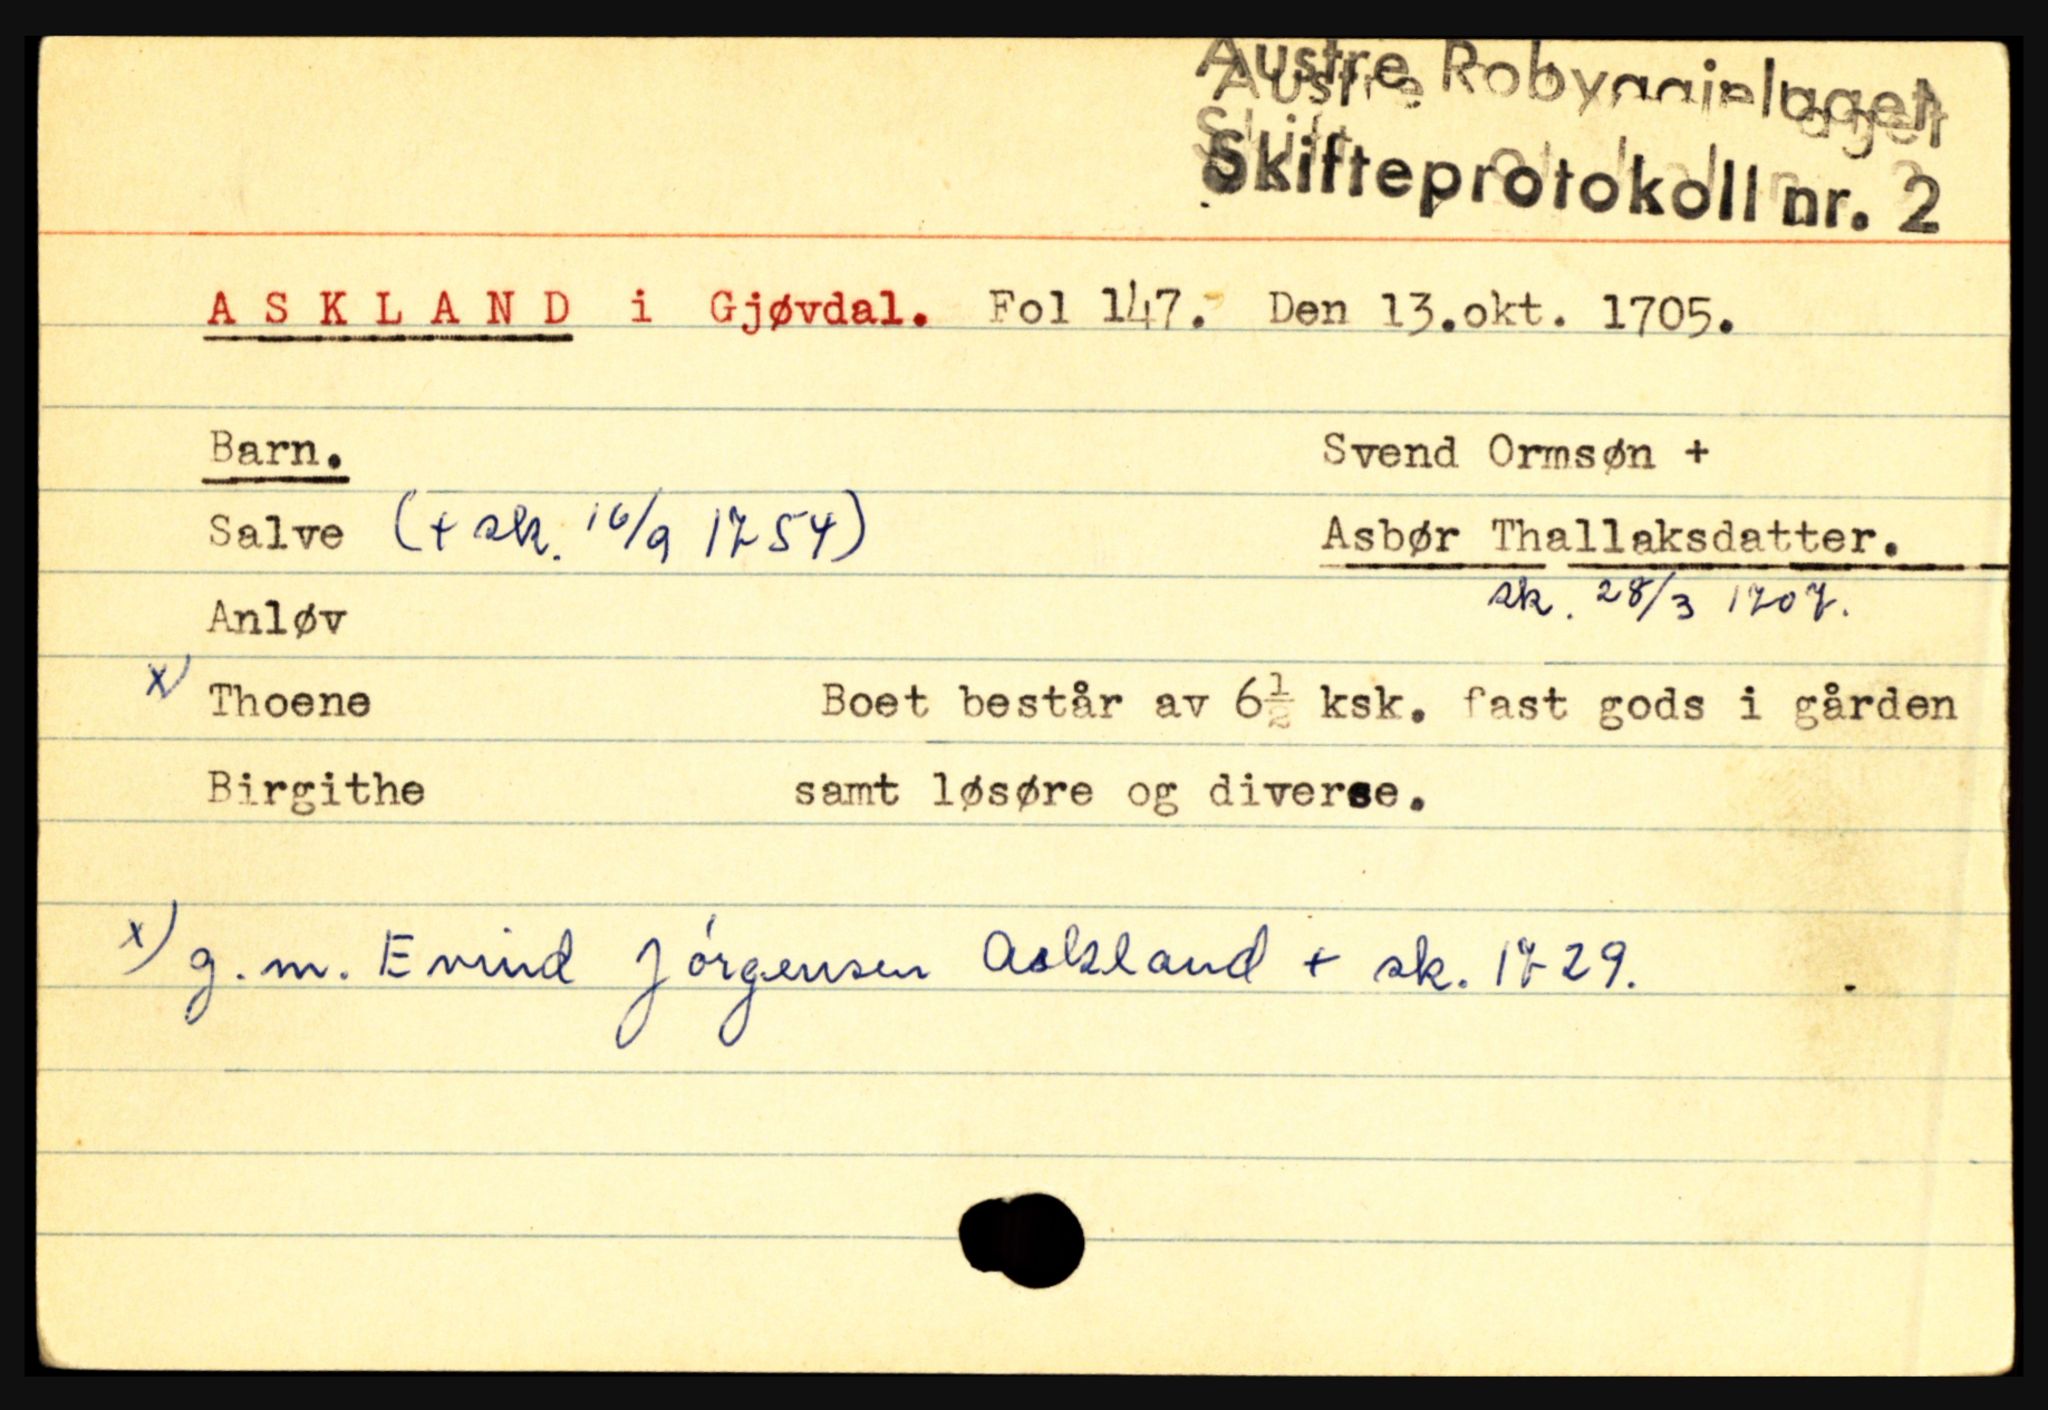 Austre Robyggjelaget
Skifteprotokoll nr. 2
ASKLAND i Gjøvdal. Fol 147. Den 13.okt. 1705.
Barn. Svend Ormsøn +
Salve (+ sk. 16/9 1754) Asbør Thallaksdatter.
sk. 28/3 1707.
Anløv
x) Thoene Boet består av 6½ ksk. fast gods i gården
Birgithe samt løsøre og diverse.
x) g.m. Evind Jørgensen Askland + sk. 1729.